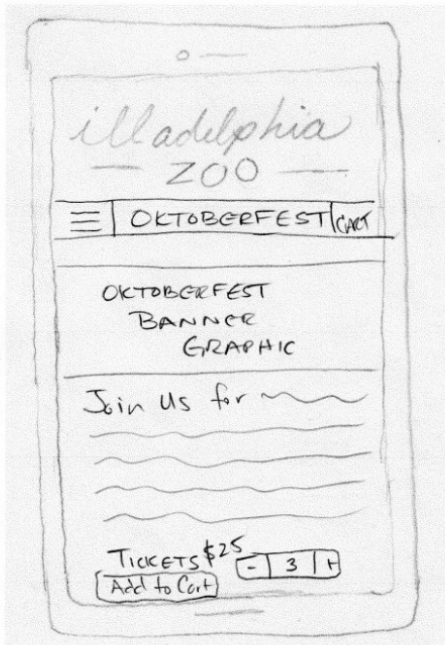 illadelphia
ZOO
OKTOBERFEST CART
OKTOBERFEST
BANNER
GRAPHIC
Join us for
TICKETS $25 - 3 +
Add to Cart